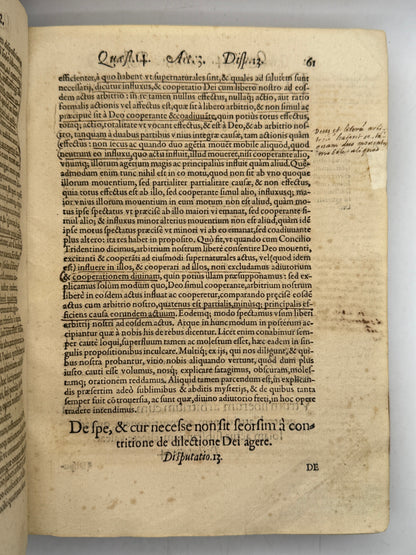 Quæst.14. Art.13. Disp.13. 61
efficienter, à quo habent vt supernaturales sint, & quales ad salutem sunt
necessarij, dicitur influxus, & cooperatio Dei cum libero nostro ad eos-
dem actus arbitrio: ita tamen vt nullus effectus, nullaq; actio, aut ratio
formalis actionis vel affectus est, quæ sit à libero arbitrio, & non simul ac
præcipuè sit à Deo cooperante & coadiuuãte, quin potiùs totus effectus,
totaq; actio, totalitate vt vocant effectus, est & à Deo, & ab arbitrio no-
stro, tanquam à duabus partibus vnius integræ causæ, tam actionis quàm
effectus: non secus ac quando duo aliqui mouẽt mobile aliquod, quod
neutrum eo influxu, quo actu influit, illud moueret, nisi cooperante alio,
vnumq; illorum magis ac principaliùs influit quàm aliud. Quẽ-
admodum enim tunc nihil est in eo motu quod non sit ab vno quoque
illorum mouentium, sed partialitate causæ, & non effectus,
quia totus effectus est ab illo, sed cooperante simul alio, influxusq; ma-
ior vnius illorum mouentium in eum motum non est aliud, quàm
motus ipse spectatus vt præcisè ab illo maiori vi emanat, sed cooperante si-
mul alio, & influxus minor alterius mouentium non est aliud, quàm idẽ
ipse motus spectatus præcisè vt minori ab eo vi emanat, sed coadiuuante
plus altero: ita res habet in proposito. Quò fit, vt quando cum Concilio
Tridentino dicimus, arbitrium nostrum liberè consentire Deo mouenti,
excitanti & cooperãti ad eiusmodi supernaturales actus, vel (quod idem
est) influere in illos, & cooperari ad illos, non excludamus adiutorium
& cooperationem diuinam, quin potiùs illam præsupponamus: sed ex-
plicamus solùm modum quo, Deo simul cooperante, arbitrium nostrum
liberè in eosdem actus influat ac cooperetur, comparando præcisè eosdẽ
actus cum arbitrio nostro, quatenus est partialis, minùsq; principalis ef-
ficiens causa eorundem actuum. Eodemq; modo spectamus vsum liberi
arbitrij nostri ad eosdem actus. Atque in hunc modum in posterum ac-
cipiantur quæ à nobis his de rebus dicentur. Licet enim conabimur sem-
per cautè loqui, superfluum tamen ac molestum esset, hæc eadem in sin-
gulis propositionibus inculcare. Multiq; ex ijs, qui nos diligunt, & qui-
bus nostra probantur, vitio nobis aliquando vertunt, quòd dum plus
cauti iusto esse volumus, nosq; explicare satagimus, obscuram, moles-
tamq; orationem reddamus. Aliquid tamen parcendum est, in explican-
dis præsertim adeò sublimibus & aditis mysterijs, & de quibus tanta
semper fuit cõtrouersia, ac sunt quæ, diuino adiutorio freti, in hoc opere
tradere intendimus.
De spe, & cur necesse non sit seorsim à con-
tritione de dilectione Dei agere.
Disputatio.13.
DE